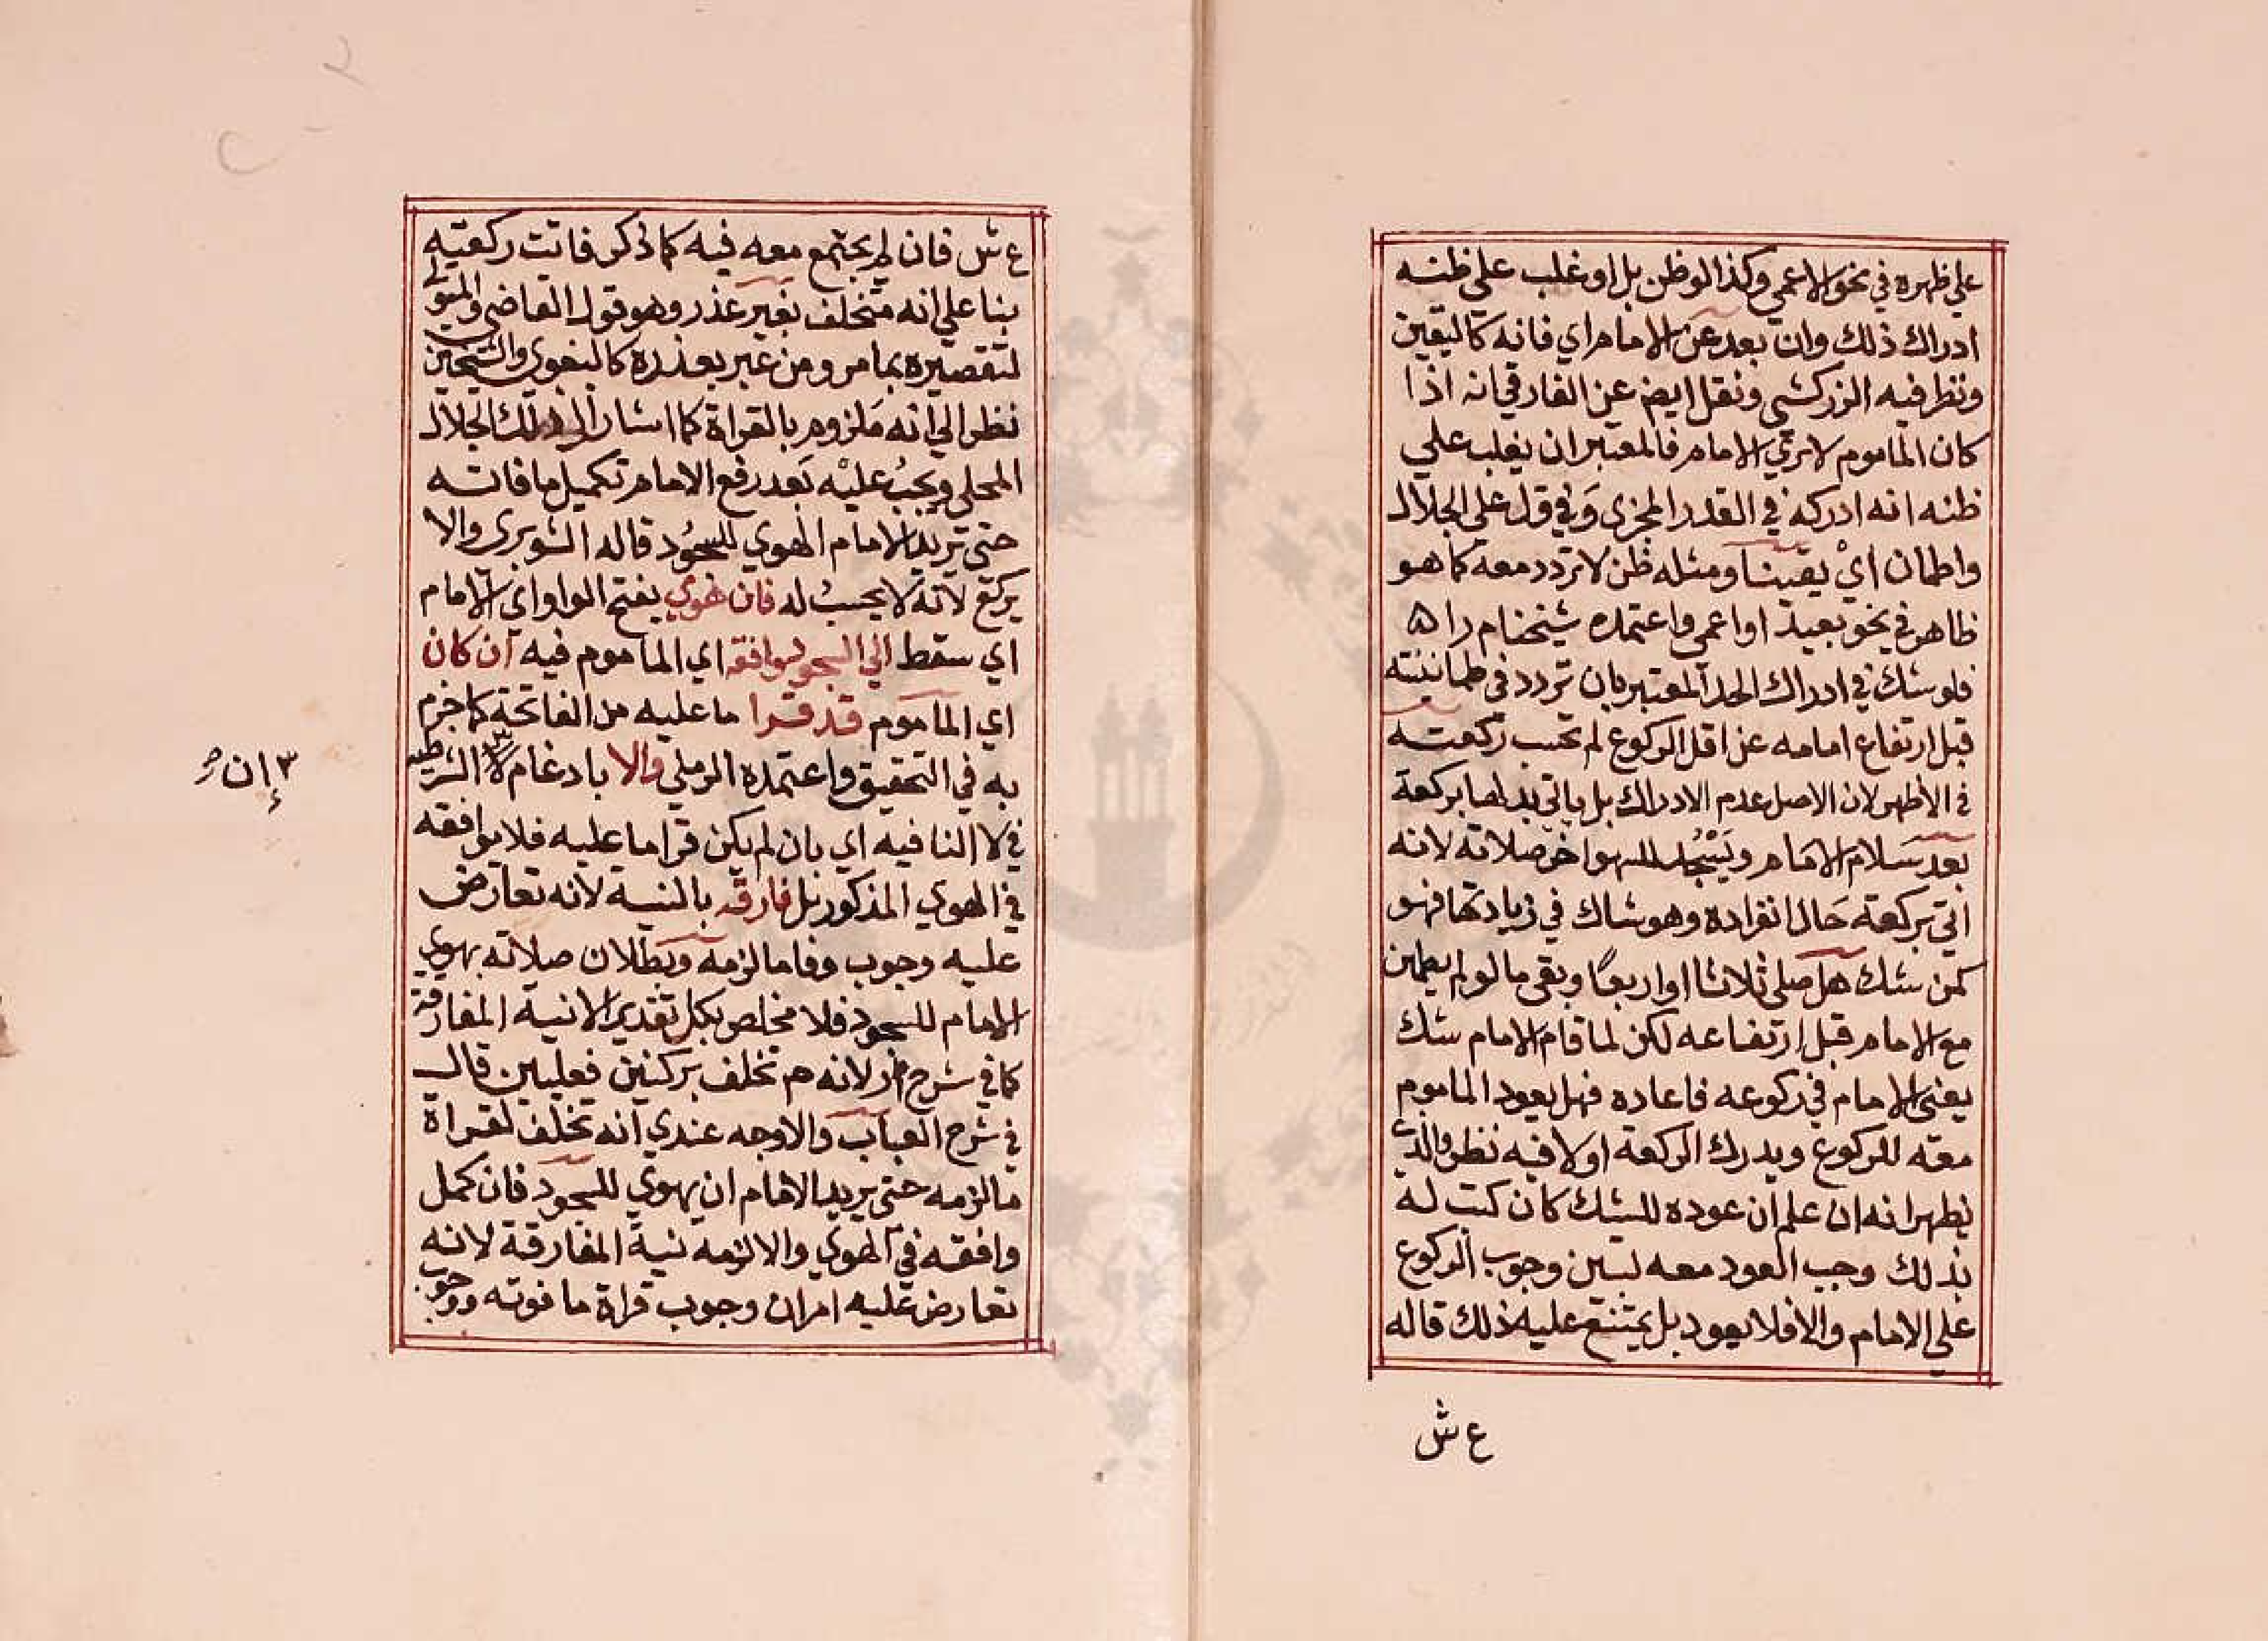 علي ظهره في نحو الاعمي وكذا لوظن بل او غلب علي ظنه
ادراك ذلك وان بعد عن الامام اي فانه كاليقين
ونظر فيه الزركشي ونقل ايض عن الفارقي انه اذا
كان الماموم لا يري الامام فالمعتبر ان يغلب علي
ظنه انه ادركه في القدر المجزي وفي ق ل علي الجلال
واطمان اي يقينا ومثله ظن لا تردد معه كما هو
ظاهر في نحو بعيد او اعمي واعتمده شيخنا م ر ا ه
فلو شك في ادراك الحد المعتبر بان تردد في طمانينته
قبل ارتفاع امامه عن اقل الركوع لم تحسب ركعته
في الاظهر لان الاصل عدم الادراك بل ياتي بدلها بركعة
بعد سلام الامام ويسجد للسهو اخر صلاته لانه
اتي بركعة حال انفراده وهو شاك في زيادتها فهو
كمن شك هل صلي ثلاثا او اربعا وبقي ما لو لم يطمين
مع الامام قبل ارتفاعه لكن لما قام الامام شك
يعني الامام في ركوعه فاعاده فهل يعود الماموم
معه للركوع ويدرك الركعة او لا فيه نظر والذي
يظهر انه ان علم ان عوده للشك كان كتب له
بذلك وجب العود معه لتبين وجوب الركوع
علي الامام والا فلا يعود بل يمتنع عليه ذلك قاله
ع ش
ع ش فان لم يجتمع معه فيه كما ذكر فاتت ركعتيه
بنا علي انه متخلف بغير عذر وهو قول القاضي والمتولي
لتقصيره بما مر ومن عبر بعذره كالبغوي والشيخين
نظر الي انه ملزوم بالقراة كما اشار الي ذلك الجلال
المحلي ويجب عليه بعد رفع الامام تكميل ما فاته
حتي يريد الامام الهوي للسجود قاله الشوبري والا
يركع لانه لا يحسب له فان هوي بفتح الواو اي الامام
اي سقط الي السجود وافقه اي الماموم فيه ان كان
اي الماموم قد قرا ما عليه من الفاتحة كما جزم
به في التحقيق واعتمده الرملي والا بادغام لا٣ الشرطيه
٣ إن صح
في لا النافيه اي بان لم يكن قرا ما عليه فلا يوافقه
في الهوي المذكور بل فارقه بالنية لانه تعارض
عليه وجوب وفا ما لزمه وبطلان صلاته بهوي
الامام للسجود فلا مخلص بكل تقدير الا نية المفارقة
كما في شرح م ر لانه ح تخلف بركنين فعليين قال
في شرح العباب والاوجه عندي انه تخلف لقراة
ما لزمه حتي يريد الامام ان يهوي للسجود فان كمل
وافقه في الهوي والا لزمه نية المفارقة لانه
تعارض عليه امران وجوب قراة ما فوته ووجوب